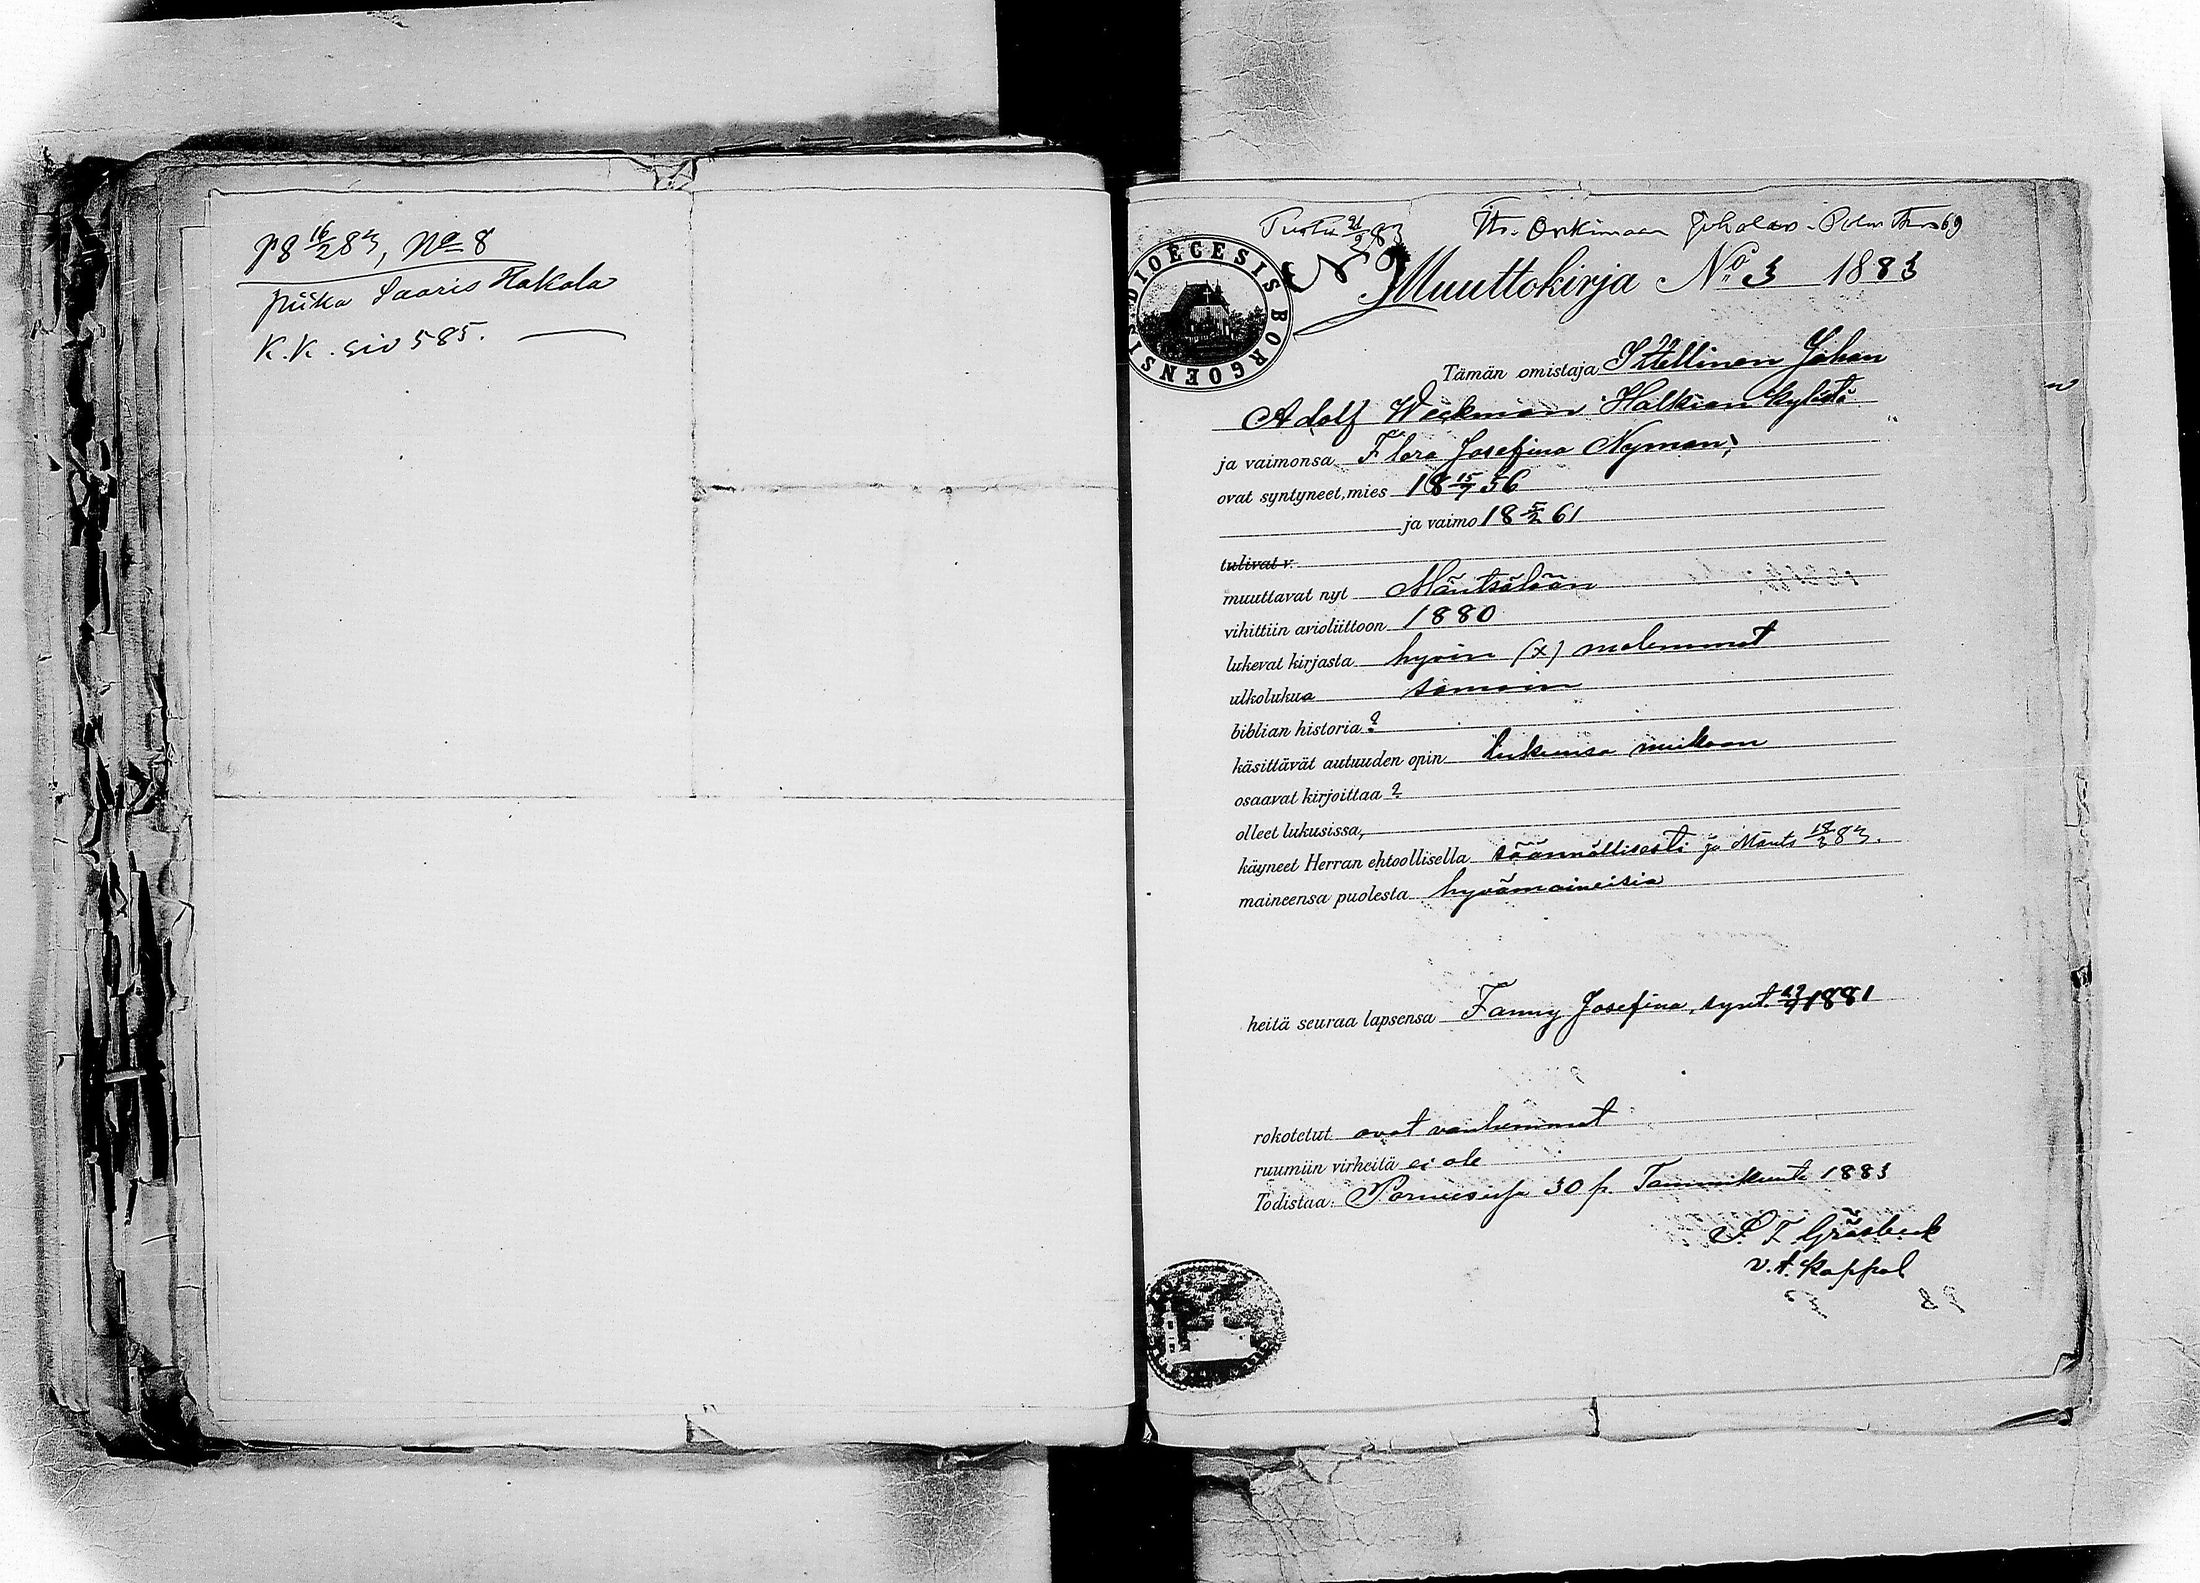 pg 16/2 83, No 8
Piika Saaris Hakola
K.K. siv 585.
21/2 83
No 9
DIOECESIS BORGOENSIS
Muuttokirja No 3 1883
Tämän omistaja Itellinen Johan
Adolf Weckman Halkian kylästä
ja vaimonsa Flora Josefina Nyman,
ovat syntyneet, mies 18 15/7 56
ja vaimo 18 5/2 61
tulivat v.
muuttavat nyt Mäntsälään
vihittiin avioliittoon 1880
lukevat kirjasta hyvin (x) molemmat
ulkolukua samoin
biblian historia?
käsittävät autuuden opin lukunsa mukaan
osaavat kirjoittaa?
olleet lukusissa,
käyneet Herran ehtoollisella säännöllisesti ja Mänts 18/2 83.
maineensa puolesta hyvämaineisia
heitä seuraa lapsensa Fanny Josefina, synt. 1881
rokotetut ovat vanhemmat
ruumiin virheitä ei ole
Todistaa: Pornaisissa 30 p. Tammikuuta 1883
Gräsbeck
v.t. Kappal